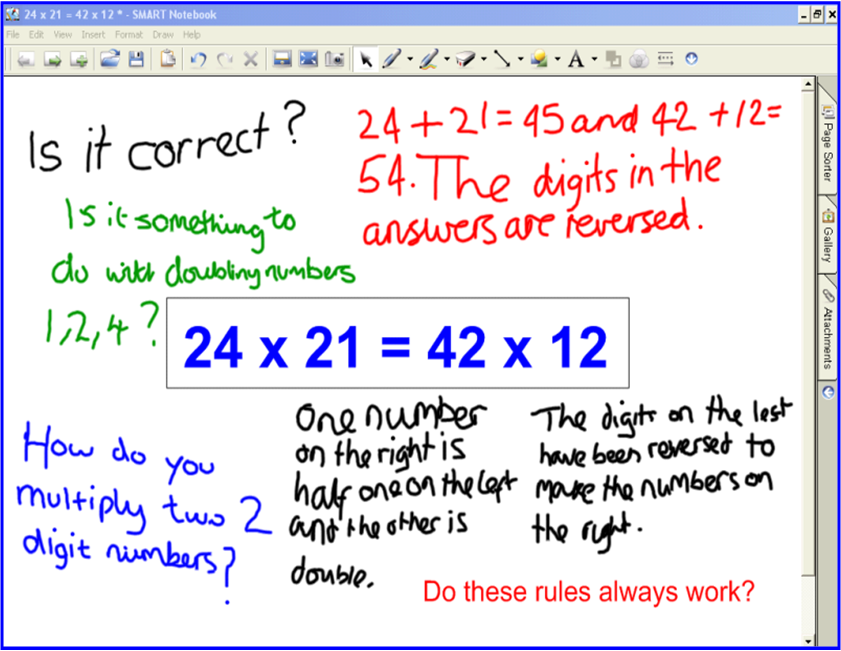 24 x 21 = 42 x 12 * - SMART Notebook
File Edit View Insert Format Draw Help
Is it correct?
24 + 21 = 45 and 42 + 12 =
54. The digits in the
answers are reversed.
Is it something to
do with doubling numbers
1, 2, 4?
24 x 21 = 42 x 12
How do you
multiply two 2
digit numbers?
One number
on the right is
half one on the left
and the other is
double.
The digits on the left
have been reversed to
make the numbers on
the right.
Do these rules always work?
Page Sorter
Gallery
Attachments